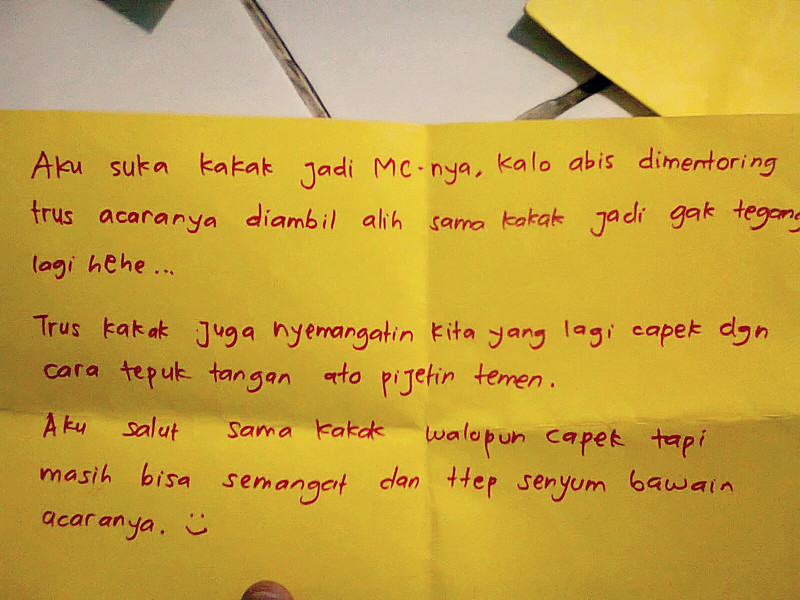 Aku suka kakak jadi MC-nya, kalo abis dimentoring
trus acaranya diambil alih sama kakak jadi gak tegang
lagi hehe...
Trus kakak juga nyemangatin kita yang lagi capek dgn
cara tepuk tangan ato pijetin temen.
Aku salut sama kakak walopun capek tapi
masih bisa semangat dan ttep senyum bawain
acaranya. :)